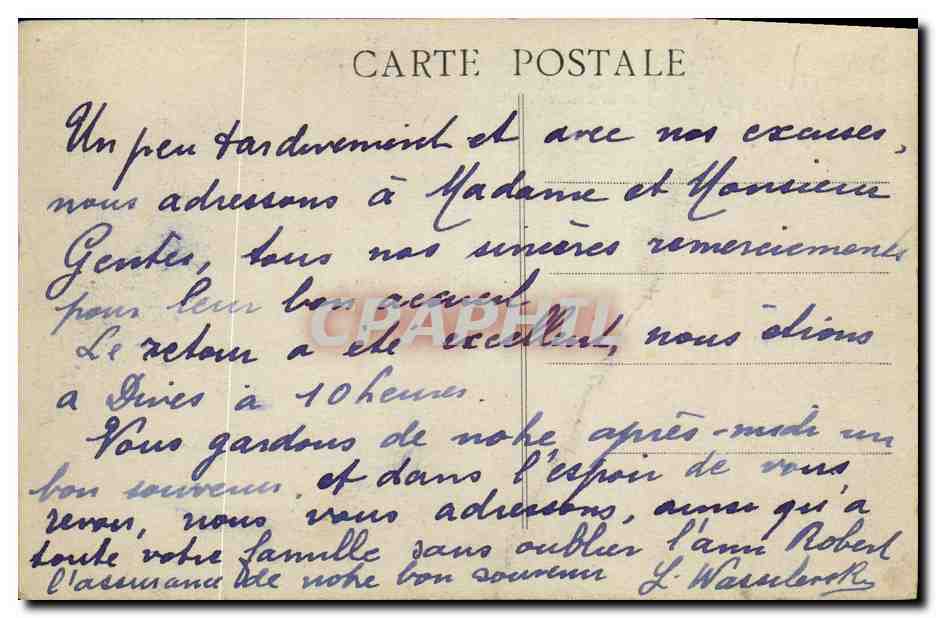 CARTE POSTALE
Un peu tardivement et avec nos excuses,
nous adressons à Madame et Monsieur
Gentès, tous nos sincères remerciements
pour leur bon accueil
CPAPHIL
Le retour a été excellent, nous étions
a Dives à 10 heures.
Vous gardons de notre après-midi un
bon souvenir, et dans l'espoir de vous
revoir, nous vous adressons, ainsi qu'à
toute votre famille sans oublier l'ami Robert
l'assurance de notre bon souvenir L. Wassilevsky